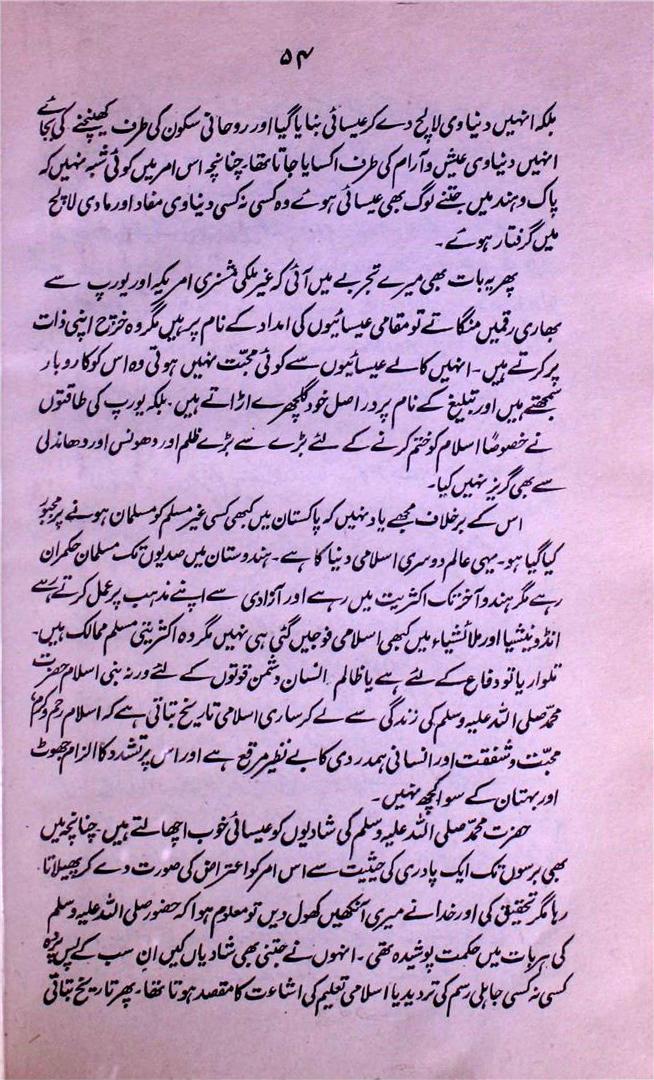 ۵۴
بلکہ انہیں دنیاوی لالچ دے کر عیسائی بنایا گیا اور روحانی سکون کی طرف کھینچنے کی بجائے
انہیں دنیاوی عیش و آرام کی طرف اکسایا جاتا تھا۔ چنانچہ اس امر میں کوئی شبہ نہیں کہ
پاک و ہند میں جتنے لوگ بھی عیسائی ہوئے وہ کسی نہ کسی دنیاوی مفاد اور مادی لالچ
میں گرفتار ہوئے۔
پھر یہ بات بھی میرے تجربے میں آئی کہ غیر ملکی مشنری امریکہ اور یورپ سے
بھاری رقمیں منگاتے تو مقامی عیسائیوں کی امداد کے نام پر ہیں مگر وہ خرچ اپنی ذات
پر کرتے ہیں۔ انہیں کالے عیسائیوں سے کوئی محبت نہیں ہوتی وہ اس کو کاروبار
سمجھتے ہیں اور تبلیغ کے نام پر دراصل خود گلچھرے اڑاتے ہیں۔ بلکہ یورپ کی طاقتوں
نے خصوصاً اسلام کو ختم کرنے کے لئے بڑے سے بڑے ظلم اور دھونس اور دھاندلی
سے بھی گریز نہیں کیا۔
اس کے برخلاف مجھے یاد نہیں کہ پاکستان میں کبھی کسی غیر مسلم کو مسلمان ہونے پر مجبور
کیا گیا ہو۔ یہی عالم دوسری اسلامی دنیا کا ہے۔ ہندوستان میں صدیوں تک مسلمان حکمران
رہے مگر ہندو آخر تک اکثریت میں رہے اور آزادی سے اپنے مذہب پر عمل کرتے رہے
انڈونیشیا اور ملائشیاء میں کبھی اسلامی فوجیں گئی ہی نہیں مگر وہ اکثریتی مسلم ممالک ہیں۔
تلوار یا تو دفاع کے لئے ہے یا ظالم انسان دشمن قوتوں کے لئے ورنہ بنی اسلام حضرت
محمد صلی اللہ علیہ وسلم کی زندگی سے لے کر ساری اسلامی تاریخ بتاتی ہے کہ اسلام رحم و کرم،
محبت و شفقت اور انسانی ہمدردی کا بے نظیر مرقع ہے اور اس پر تشدد کا الزام جھوٹ
اور بہتان کے سوا کچھ نہیں۔
حضرت محمد صلی اللہ علیہ وسلم کی شادیوں کو عیسائی خوب اچھالتے ہیں۔ چنانچہ میں
بھی برسوں تک ایک پادری کی حیثیت سے اس امر کو اعتراض کی صورت دے کر پھیلاتا
رہا مگر تحقیق کی اور خدا نے میری آنکھیں کھول دیں تو معلوم ہوا کہ حضور صلی اللہ علیہ وسلم
کی ہر بات میں حکمت پوشیدہ تھی۔ انہوں نے جتنی بھی شادیاں کیں ان سب کے پس پردہ
کسی نہ کسی جاہلی رسم کی تردید یا اسلامی تعلیم کی اشاعت کا مقصد ہوتا تھا۔ پھر تاریخ بتاتی